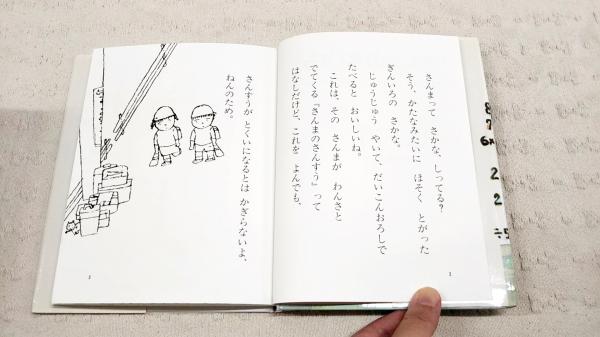 さんまって さかな、しってる?
そう、かたなみたいに ほそく とがった
ぎんいろの さかな。
じゅうじゅう やいて、だいこんおろしで
たべると おいしいね。
これは、その さんまが わんさと
でてくる「さんまのさんすう」って
はなしだけど、これを よんでも、
さんすうが とくいになるとは かぎらないよ、
ねんのため。